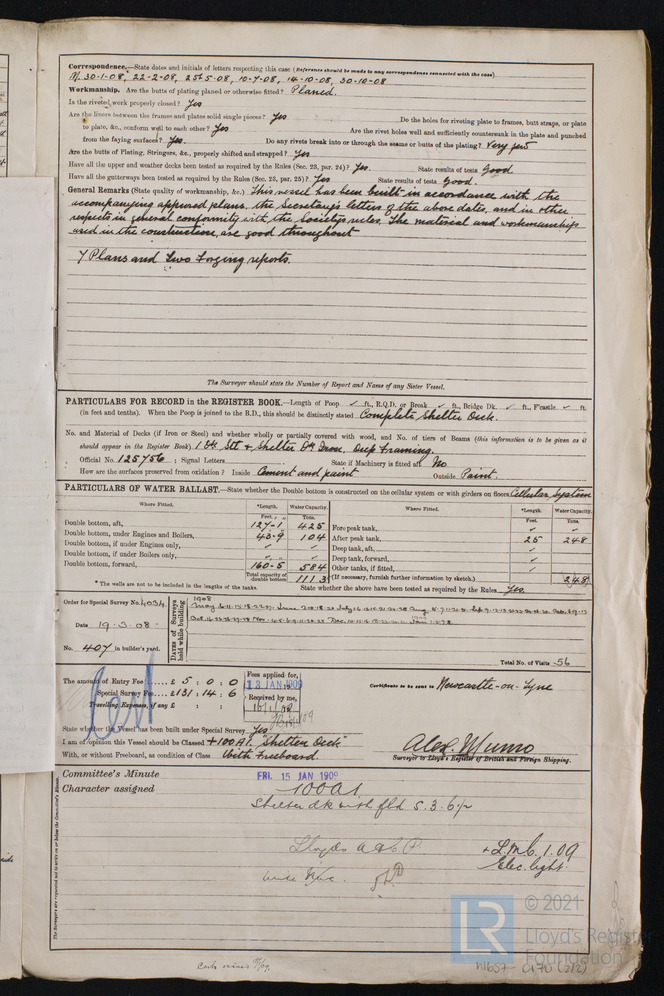 Correspondence.—State dates and initials of letters respecting this case (Reference should be made to any correspondence connected with the case)
30-1-08, 22-2-08, 25-5-08, 10-7-08, 14-10-08, 30-10-08
Workmanship. Are the butts of plating planed or otherwise fitted? Planed.
Is the riveted work properly closed? Yes
Are the liners between the frames and plates solid single pieces? Yes Do the holes for riveting plate to frames, butt straps, or plate
to plate, &c., conform well to each other? Yes Are the rivet holes well and sufficiently countersunk in the plate and punched
from the faying surfaces? Yes. Do any rivets break into or through the seams or butts of the plating? Very few
Are the butts of Plating, Stringers, &c., properly shifted and strapped? Yes
Have all the upper and weather decks been tested as required by the Rules (Sec. 23, par. 24)? Yes. State results of tests Good
Have all the gutterways been tested as required by the Rules (Sec. 23, par. 25)? Yes State results of tests Good.
General Remarks (State quality of workmanship, &c.) This vessel has been built in accordance with the
accompanying approved plans, the Secretary's letters of the above dates, and in other
respects in general conformity with the Society's rules. The material and workmanship
used in the construction, are good throughout
7 Plans and two Forging reports.
The Surveyor should state the Number of Report and Name of any Sister Vessel.
PARTICULARS FOR RECORD in the REGISTER BOOK.—Length of Poop ✓ ft., R.Q.D. or Break ✓ ft., Bridge Dk. ✓ ft., F'castle ✓ ft.
(in feet and tenths). When the Poop is joined to the B.D., this should be distinctly stated Complete Shelter Deck.
No. and Material of Decks (if Iron or Steel) and whether wholly or partially covered with wood, and No. of tiers of Beams (this information is to be given as it
should appear in the Register Book) 1 Dk. Stl & Shelter Dk Iron, Deep Framing.
Official No. 125756 ; Signal Letters State if Machinery is fitted aft No
How are the surfaces preserved from oxidation? Inside Cement and paint Outside Paint.
PARTICULARS OF WATER BALLAST.—State whether the Double bottom is constructed on the cellular system or with girders on floors Cellular System
Where Fitted. *Length. Water Capacity. Where Fitted. *Length. Water Capacity.
Feet. Tons. Feet. Tons.
Double bottom, aft, 127-1 425 Fore peak tank, ✓
Double bottom, under Engines and Boilers, 43-9 104 After peak tank, 25 248
Double bottom, if under Engines only, ✓ ✓ Deep tank, aft, ✓
Double bottom, if under Boilers only, ✓ ✓ Deep tank, forward, ✓
Double bottom, forward, 160-5 584 Other tanks, if fitted, ✓
Total capacity of double bottom 1113 (If necessary, furnish further information by sketch.) 248
* The wells are not to be included in the lengths of the tanks. State whether the above have been tested as required by the Rules Yes.
Order for Special Survey No. 4034
Date 19-3-08
No. 407 in builder's yard.
DATES of Surveys held while building
1908
Total No. of Visits 56
The amount of Entry Fee £ 5 : 0 : 0
Special Survey Fee £131 : 14 : 6
Travelling Expenses, if any £ : :
Fees applied for,
13 JAN 1909
Received by me,
Certificate to be sent to Newcastle-on-Tyne
State whether the Vessel has been built under Special Survey Yes
I am of opinion this Vessel should be Classed +100A1. "Shelter Deck"
With, or without Freeboard, as condition of Class With Freeboard
Alex. Munro
Surveyor to Lloyd's Register of British and Foreign Shipping.
Committee's Minute FRI. 15 JAN 1909
Character assigned 100A1
Shelter dk with fbd 5.3.6½
Lloyds A & C. P. + L.M.C. 1.09
Elec. light.
© 2021
LR
Lloyd's Register
Foundation